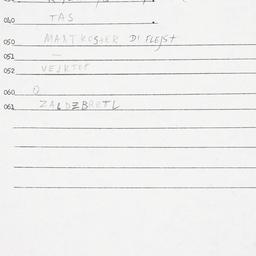 040 TAS
050 MANTKOSHER DI FLEJST
051 —
052 VEJKTOP
060 O
061 ZALDZBRETL